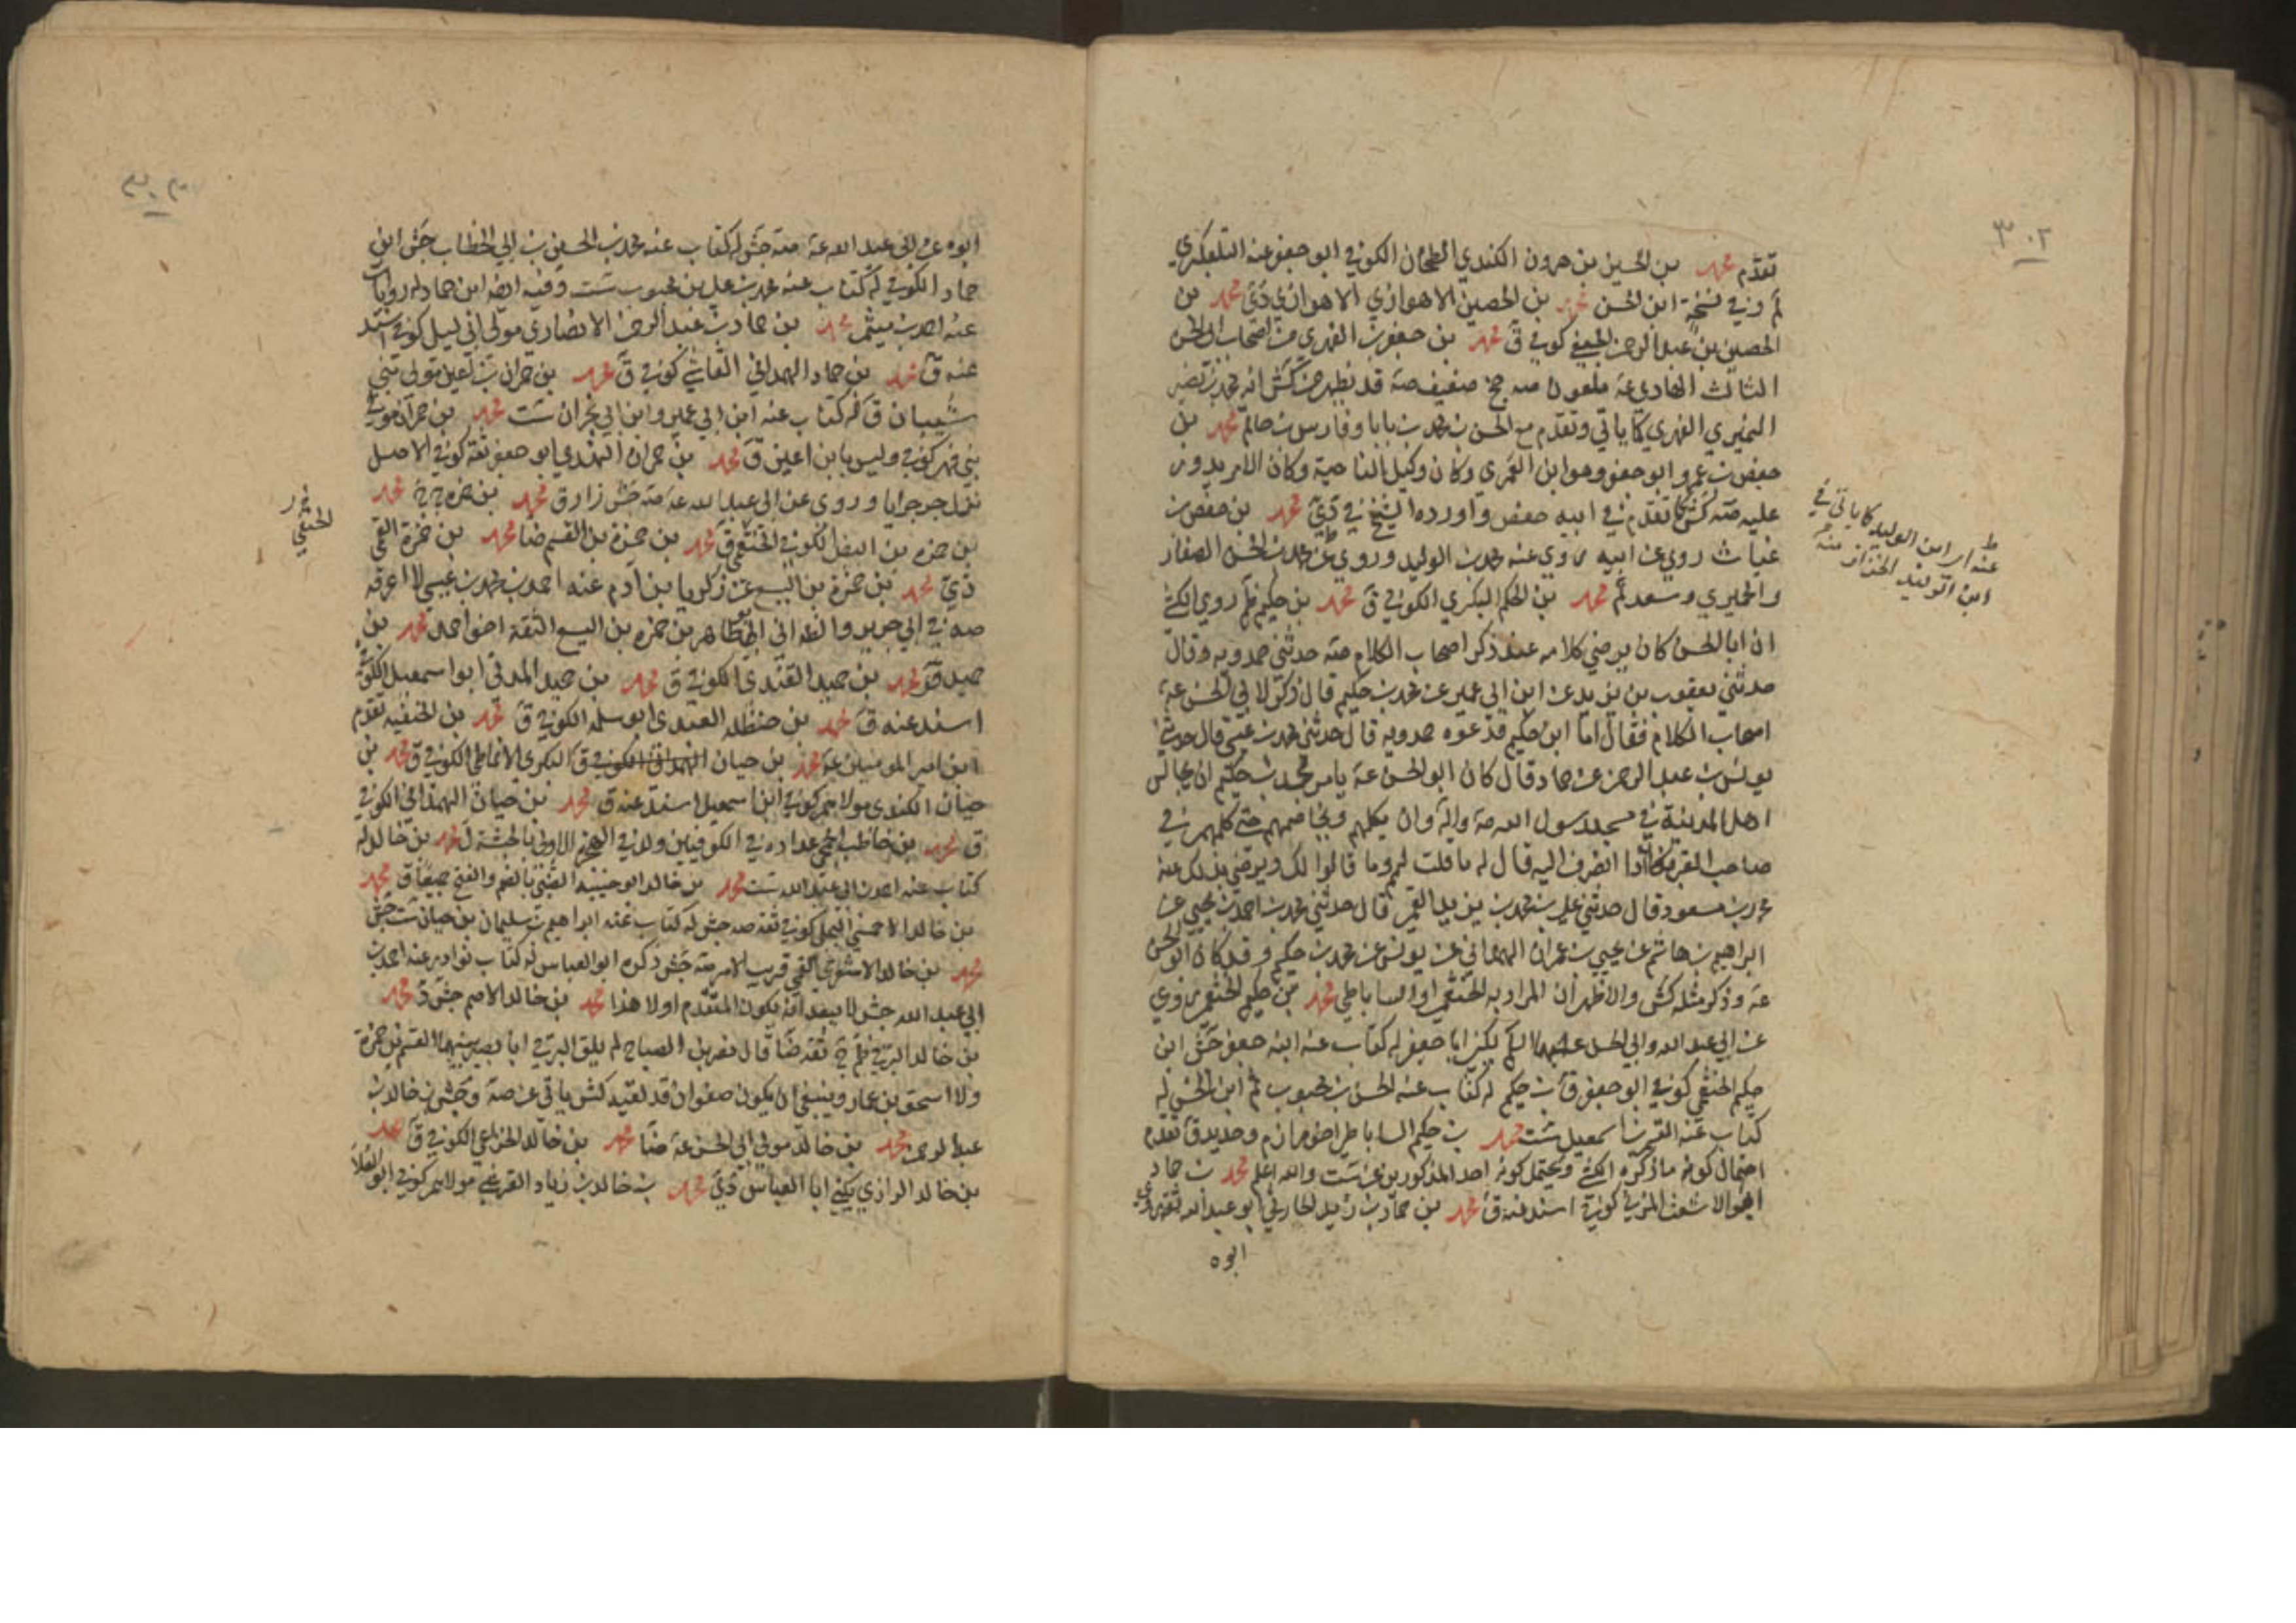 ٣٠٢
تقدّم محمد بن الحسين بن هرون الكندي الطحان الكوفي ابو جعفر عنه التلعكبري
لم وفي نسخة ابن الحسن محمد بن الحصين الاهوازي الاهوازي دي محمد بن
الحصين بن عبد الرحمن الجعفي كوفي ق محمد بن حصين الفهري من اصحاب ابي الحسن
الثالث الهادي عة ملعون صه جخ ضعيف صة قد يظهر من كش انه محمد بن نصير
النميري الفهري كما ياتي وتقدم مع الحسن بن محمد بن بابا وفارس بن حاتم محمد بن
حفص بن عمرو ابو جعفر وهو ابن العمري وكان وكيل الناحية وكان الامر يدور
عليه صة كش كما تقدم في ابيه حفص واورده الشيخ في دي محمد بن حفص بن
غياث روى عن ابيه روى عنه محمد بن الوليد وروى عن محمد بن الحسن الصفار
والحميري وسعد لم محمد بن الحكم البكري الكوفي ق محمد بن حكيم ظم روى الكشي
ان ابا الحسن كان يرضي كلامه عند ذكر اصحاب الكلام صة حدثني حمدويه وقال
حدثني يعقوب بن يزيد عن ابن ابي عمير عن محمد بن حكيم قال ذكر لابي الحسن عة
اصحاب الكلام فقال اما ابن حكيم فدعوه حمدويه قال حدثني محمد بن عيسى قال حدثني
يونس بن عبد الرحمن عن حماد قال كان ابو الحسن عة يامر محمد بن حكيم ان يجالس
اهل المدينة في مسجد رسول الله صة وآله وان يكلمهم ويخاصمهم حتى كلمهم في
صاحب القبر فكان اذا انصرف اليه قال له ما قلت لهم وما قالوا لك ويرضى بذلك منه
محمد بن مسعود قال حدثني علي بن محمد بن يزيد القمي قال حدثني محمد بن احمد بن يحيى عن
ابراهيم بن هاشم عن يحيى بن عمران الهمداني عن يونس عن محمد بن حكيم وقد كان ابو الحسن
عة وذكر مثله كش والاظهر ان المراد به الخثعمي او الساباطي محمد بن حكيم الخثعمي روى
عن ابي عبد الله وابي الحسن عليهما السلم يكنى ابا جعفر له كتاب عنه ابنه جعفر جش ابن
حكيم الخثعمي كوفي ابو جعفر ق بن حكيم له كتاب عنه الحسن بن محبوب ثم ابن الحسن له
كتاب عنه القسم بن اسمعيل ست محمد بن حكيم الساباطي اخو مرازم وحديد ق تقدم
احتمال كونه ما ذكره الكشي ويحتمل كونه احد المذكورين عن ست والله اعلم محمد بن حماد
ابو الاشعث المزني كوفي اسند عنه ق محمد بن حماد بن زيد الحارثي ابو عبد الله ثقة روى
ابوه
عنه اي ابن الوليد كما ياتي في
ابن الوليد الخزاز منه
٣٠٣
ابوه عن ابي عبد الله عة صة جش له كتاب عنه محمد بن الحسين بن ابي الخطاب جش ابن
حماد الكوفي له كتاب عنه محمد بن علي بن محبوب ست وفيه ايضا ابن حماد له روايات
عنه احمد بن ميثم محمد بن حماد بن عبد الرحمن الانصاري مولى ابي ليلى كوفي اسند
عنه ق محمد بن حماد الهمداني الفايشي كوفي ق محمد بن حمران بن اعين مولى بني
شيبان ق له كتاب عنه ابن ابي عمير وابن ابي نجران ست محمد بن حمران مولى
بني فهر كوفي وليس بابن اعين ق محمد بن حمران النهدي ابو جعفر ثقة كوفي الاصل
نزل جرجرايا وروى عن ابي عبد الله عة صة جش زاد ق محمد بن حمزه محمد
بن حمزه بن البيض الكوفي الخثعمي ق محمد بن حمزة بن القسم ضا محمد بن حمزة القمي
دي محمد بن حمزة بن اليسع عن زكريا بن آدم عنه احمد بن محمد بن عيسى لا اعرفه
محمد بن
حميد ق محمد بن حميد الكوفي ق محمد بن حميد المدني ابو اسمعيل الكوفي
اسند عنه ق محمد بن حنظلة العبدي ابو سلمه الكوفي ق محمد بن الحنفيه تقدم
ابن امير المومنين عة محمد بن حيان الهمداني الكوفي ق البكري الانماطي الكوفي ق محمد بن
حيان الكندي مولاهم كوفي ابن اسمعيل اسند عنه ق محمد بن حيان الهمداني الكوفي
ق محمد بن حاطب الجمحي عداده في الكوفيين ولد في الهجرة الاولى بالحبشة ل محمد بن خالد له
كتاب عنه احمد بن ابي عبد الله ست محمد بن خالد ابو حبيبه الضبي بالضم والفتح جميعا ق محمد
بن خالد الاحمسي البجلي كوفي ثقة صه جش له كتاب عنه ابراهيم بن سليمان بن حيان ست جش
محمد بن خالد الاشعري القمي قريب الامر صة جش ذكره ابو العباس له كتاب نوادر عنه احمد بن
ابي عبد الله جش لا يبعد انه يكون المتقدم اولا هذا محمد بن خالد الاصم جش د محمد
بن خالد البرقي ظم ج ثقة ضا قال نصر بن الصباح لم يلق البرقي ابا بصير بينهما القسم بن حمزة
ولا اسحق بن عمار وينبغي ان يكون صفوان قد لقيه كش ياتي عن صة وجش بن خالد بن
عبد الرحمن محمد بن خالد مولى ابي الحسن عة ضا محمد بن خالد الخزاعي الكوفي ق محمد
بن خالد الرازي يكنى ابا العباس دي محمد بن خالد بن زياد القرشي مولاهم كوفي ابو العلا
الخثعمي